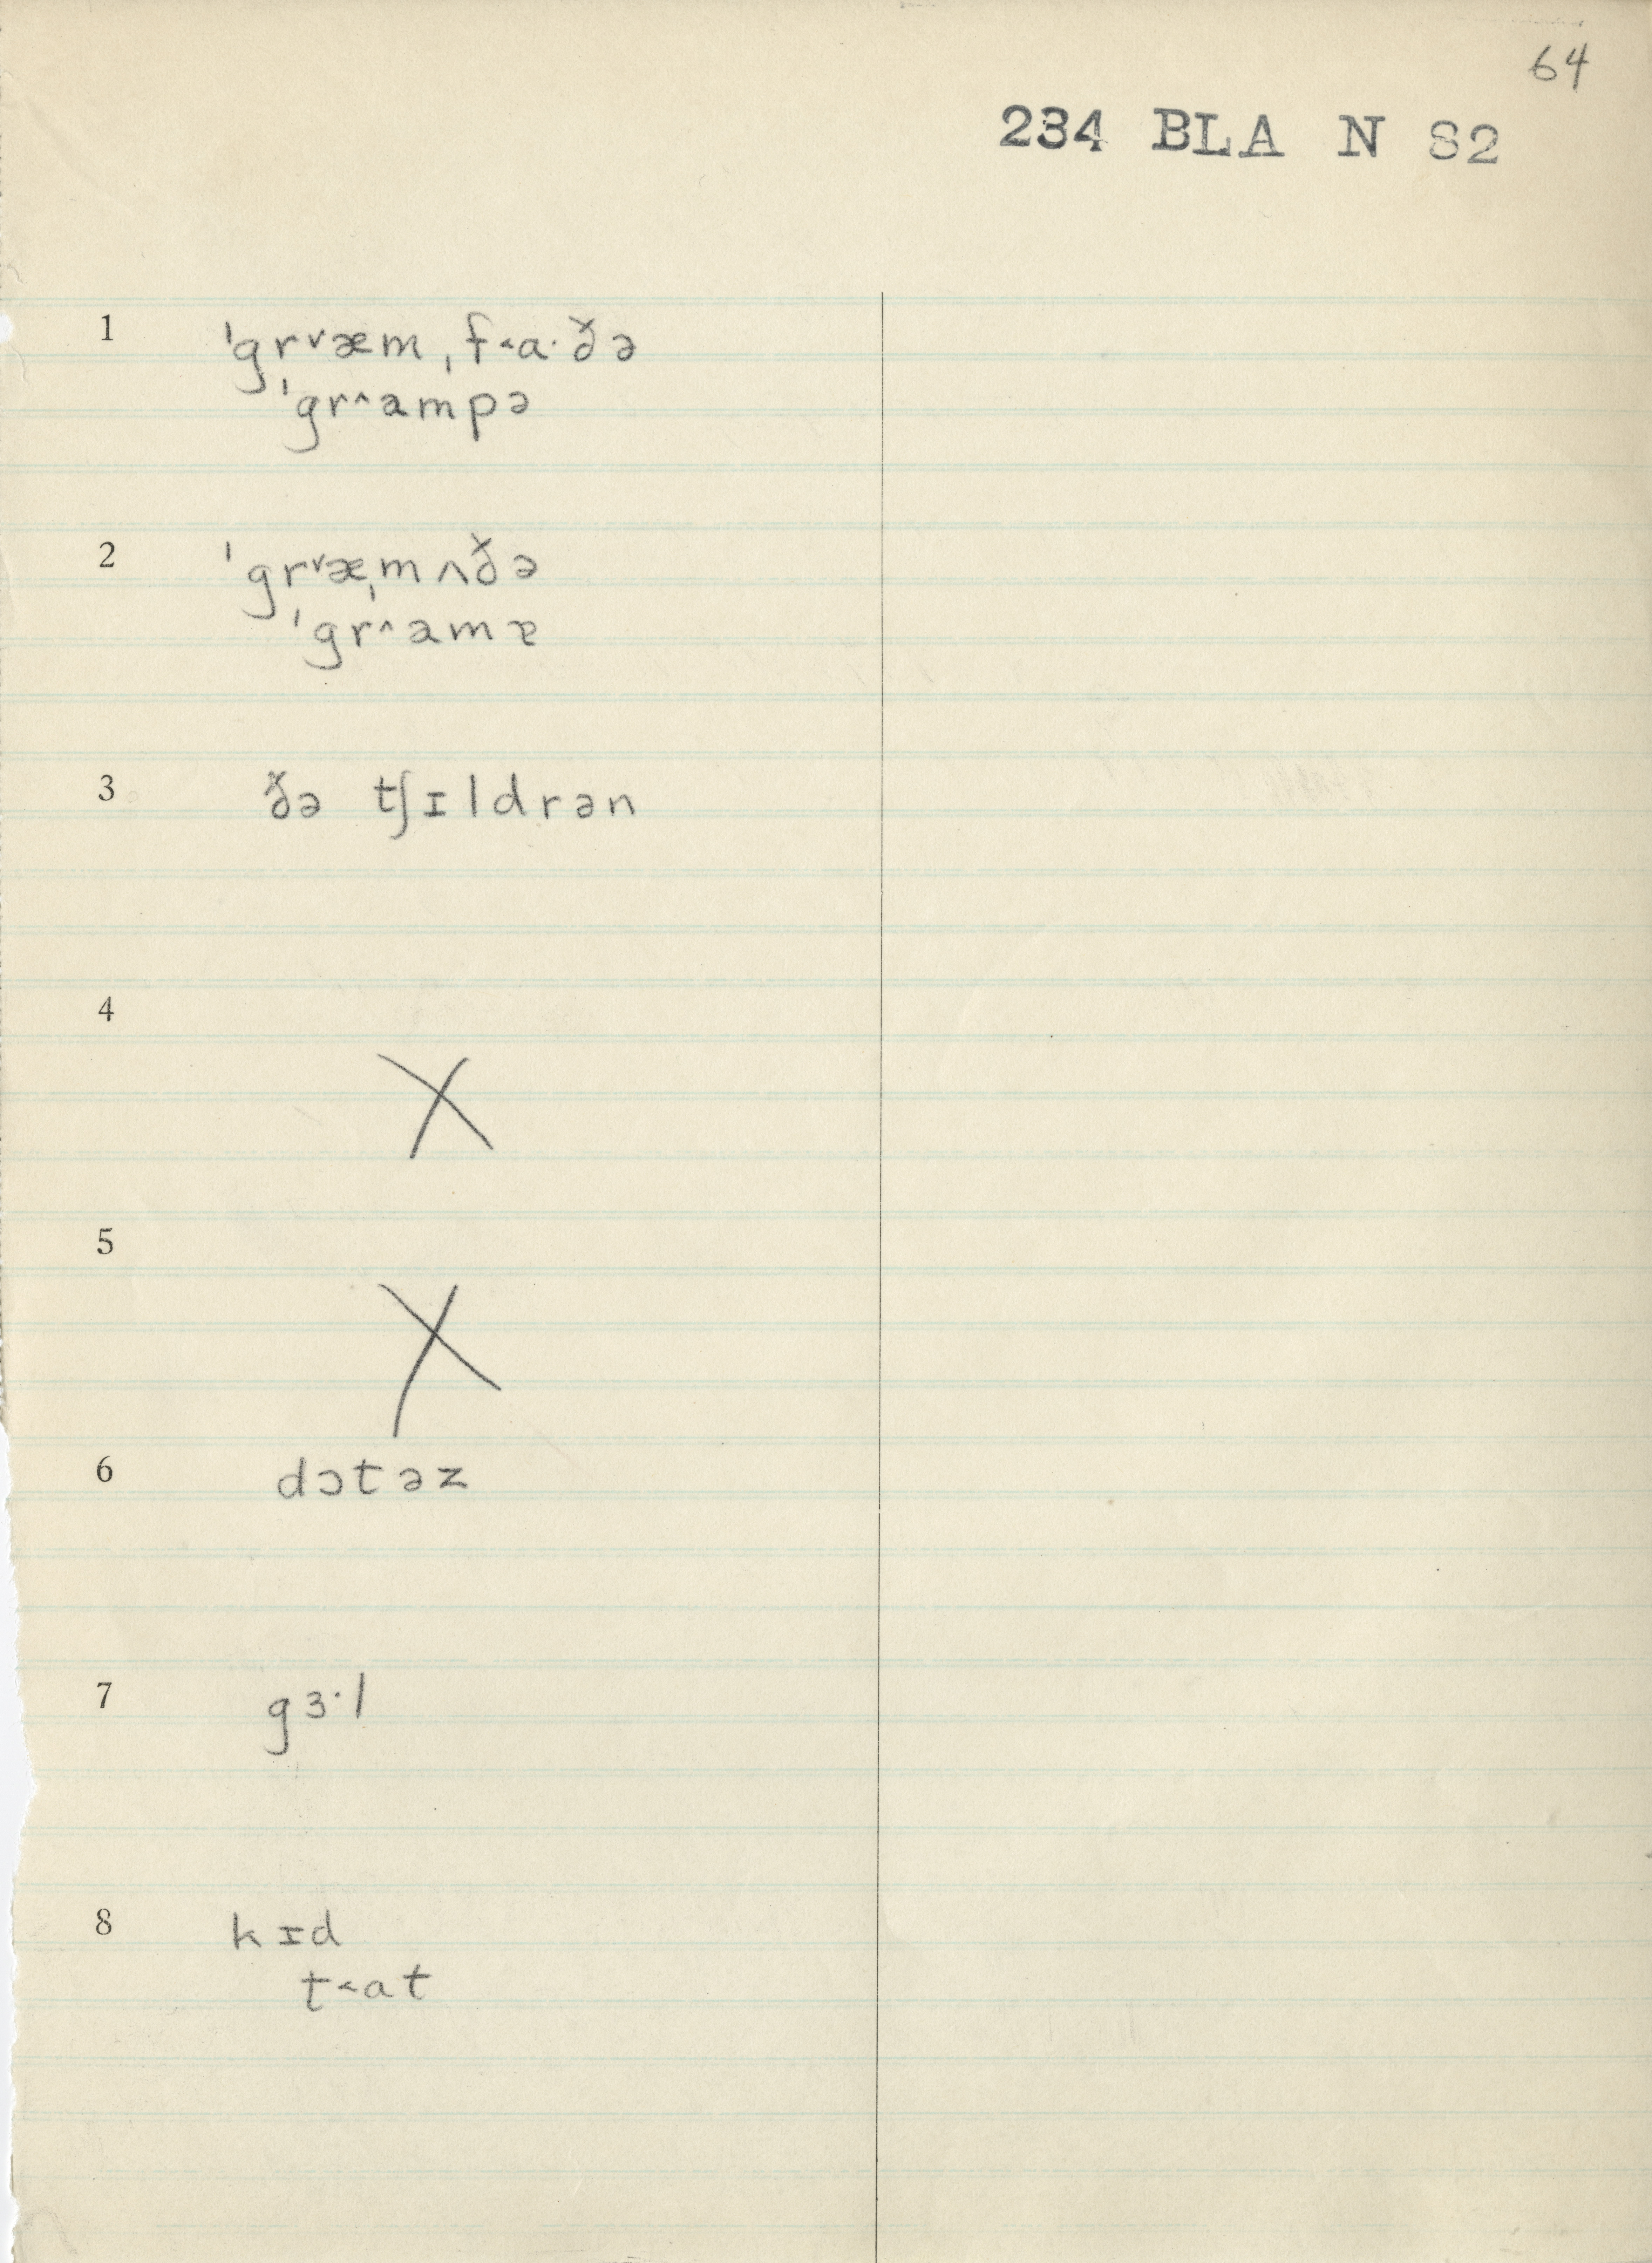 64
234 BLA N 82
1 ˈgr˅æmˌf˂a·ðə
ˈgr˄ampə
2 ˈgr˅æˌmʌðə
ˈgr˄amɐ
3 ðə tʃɪldrən
4 X
5 X
6 dɔtəz
7 gɜ·l
8 kɪd
t˂at